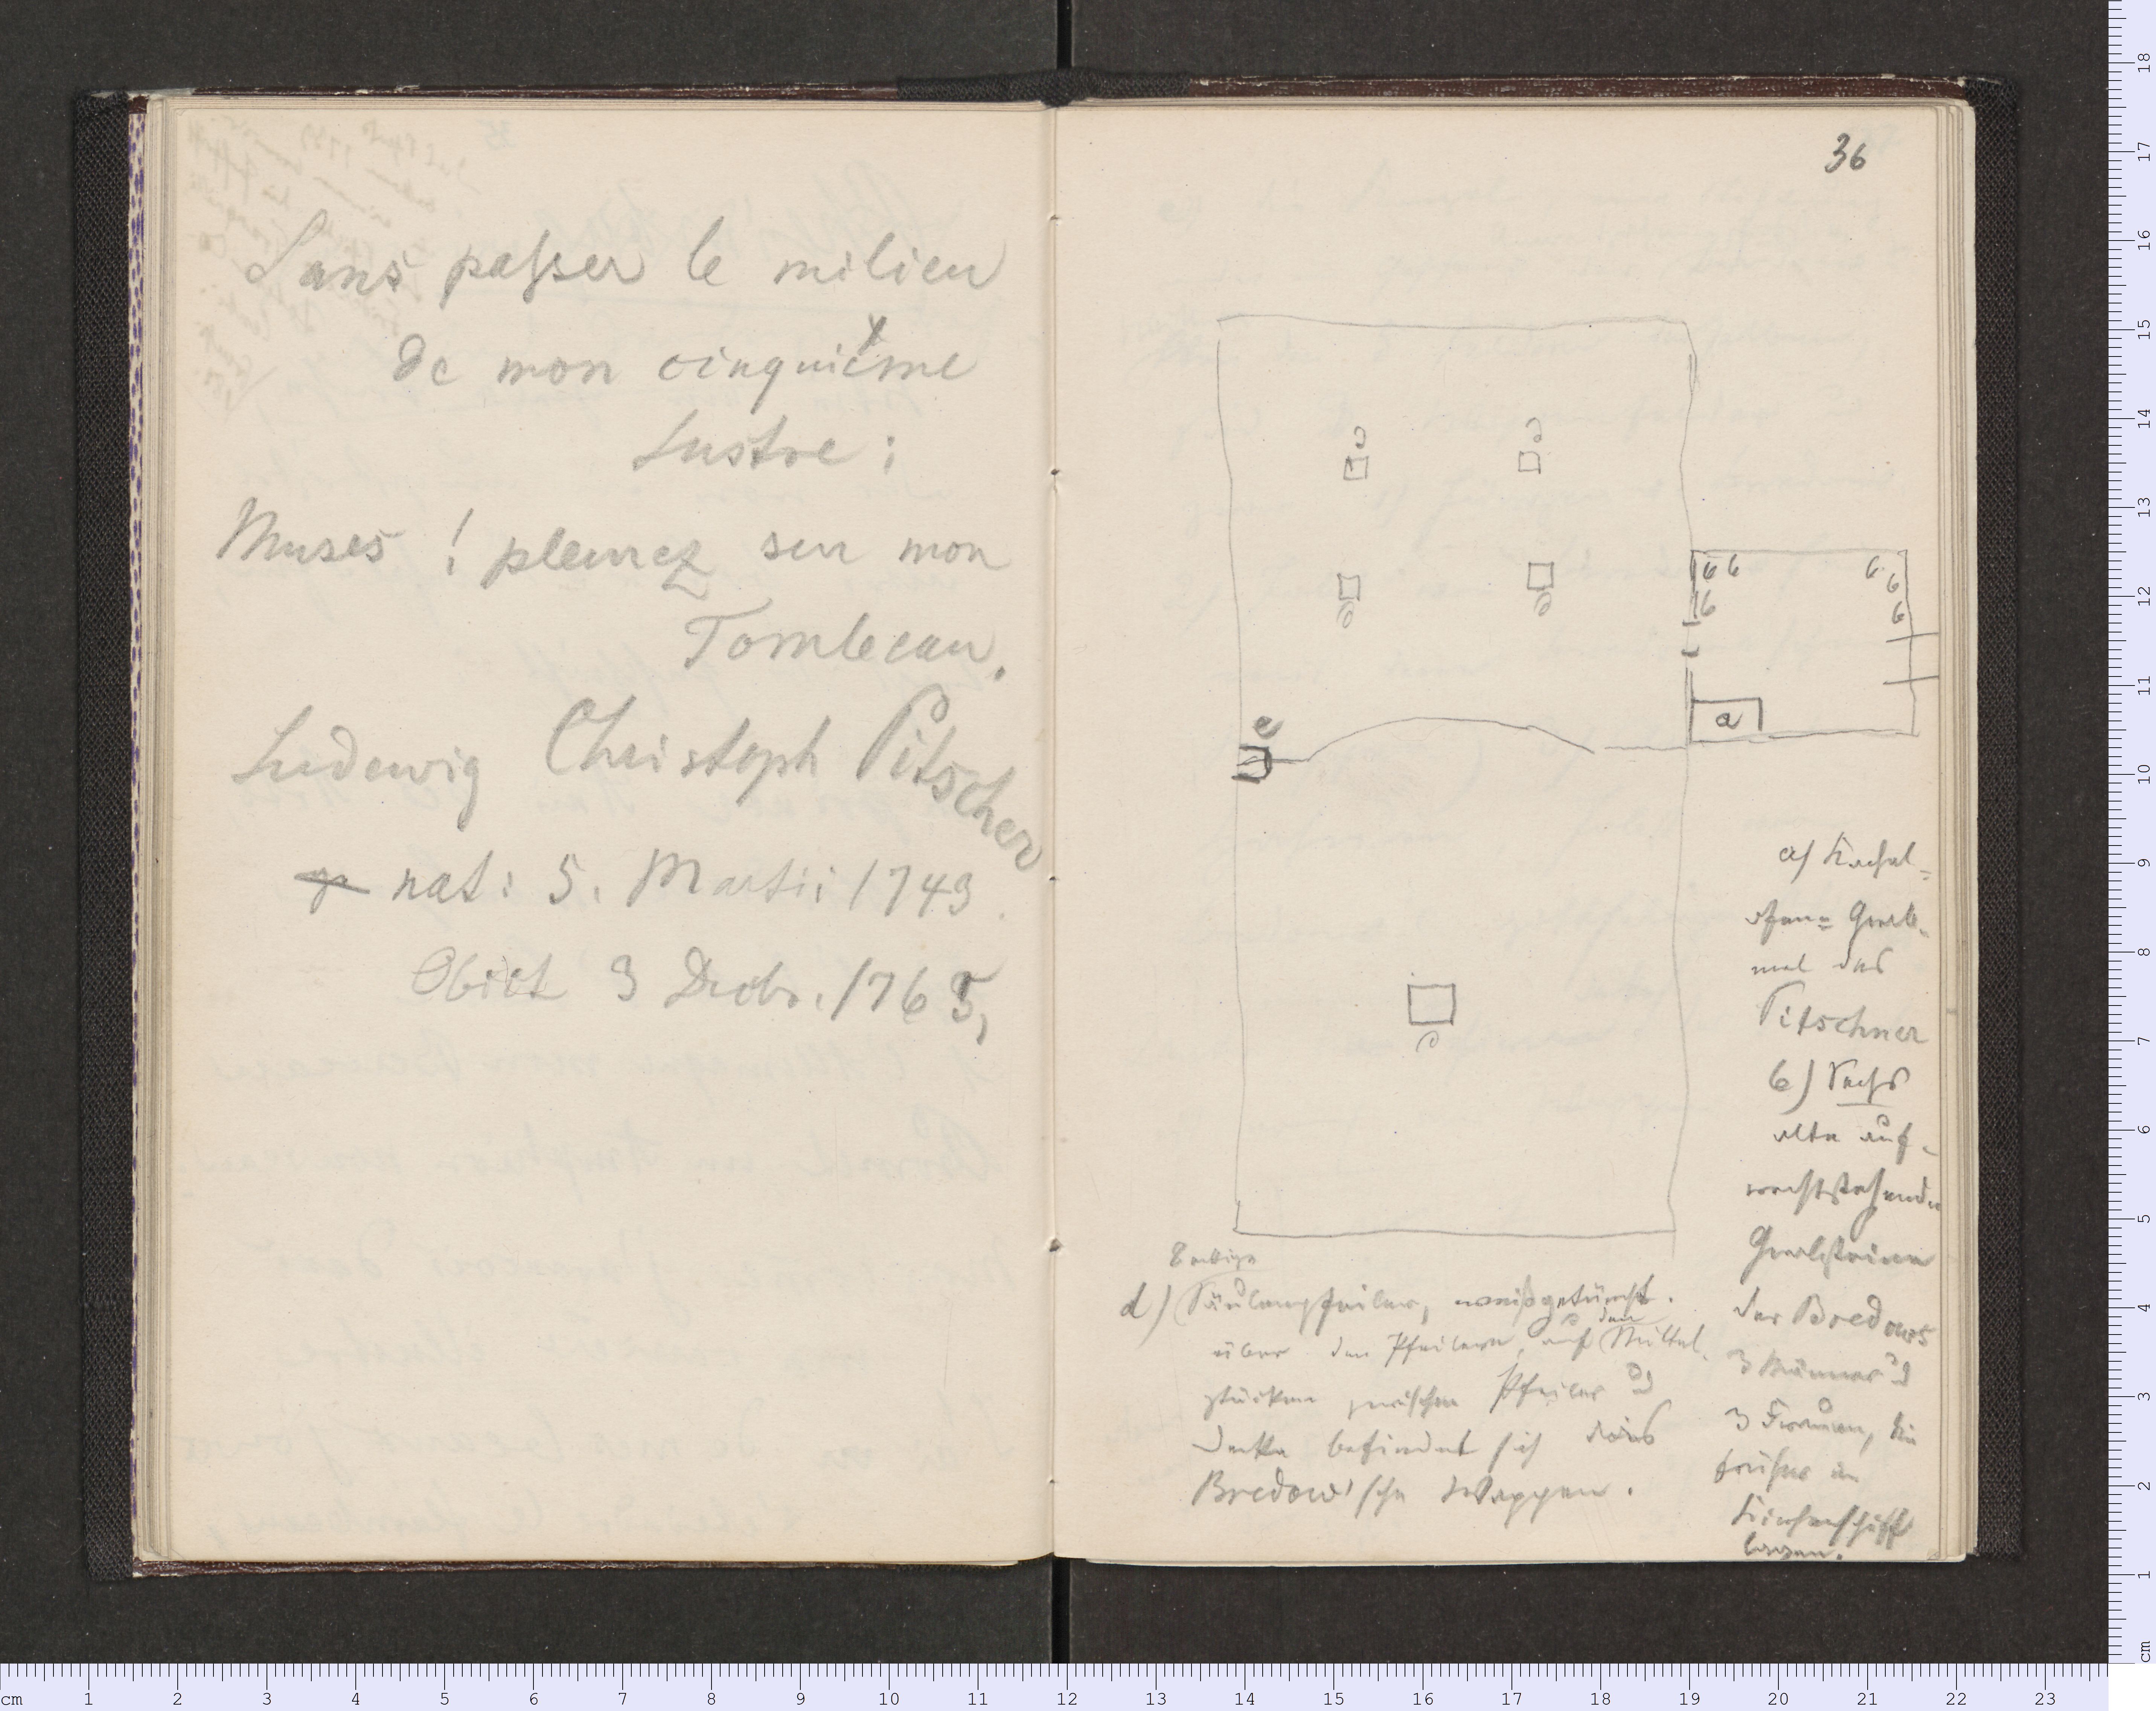 Sans passer le milieu
de mon cinquiéme
Lustre;
Muses! pleurez sur mon
Tombeau.
Ludewig Christoph Pitscher
nat: 5. Martii 1743.
Obiit 3 Decbr. 1765,
36
c c
b b b b
b b b
c c
a
e
c
a) Kachel-
ofen-Grab-
mal des
Pitschner
b) Sechs
alte auf-
rechtstehende
Grabsteine
der Bredows
3 Männer u
3 Frauen, die
früher im
Kirchenschiff
lagen.
8eckige
d) Säulenpfeiler, weißgetüncht.
über den Pfeilern, auf den Mittel-
stücken zwischen Pfeiler u
Decke befindet sich das
Bredow'sche Wappen.